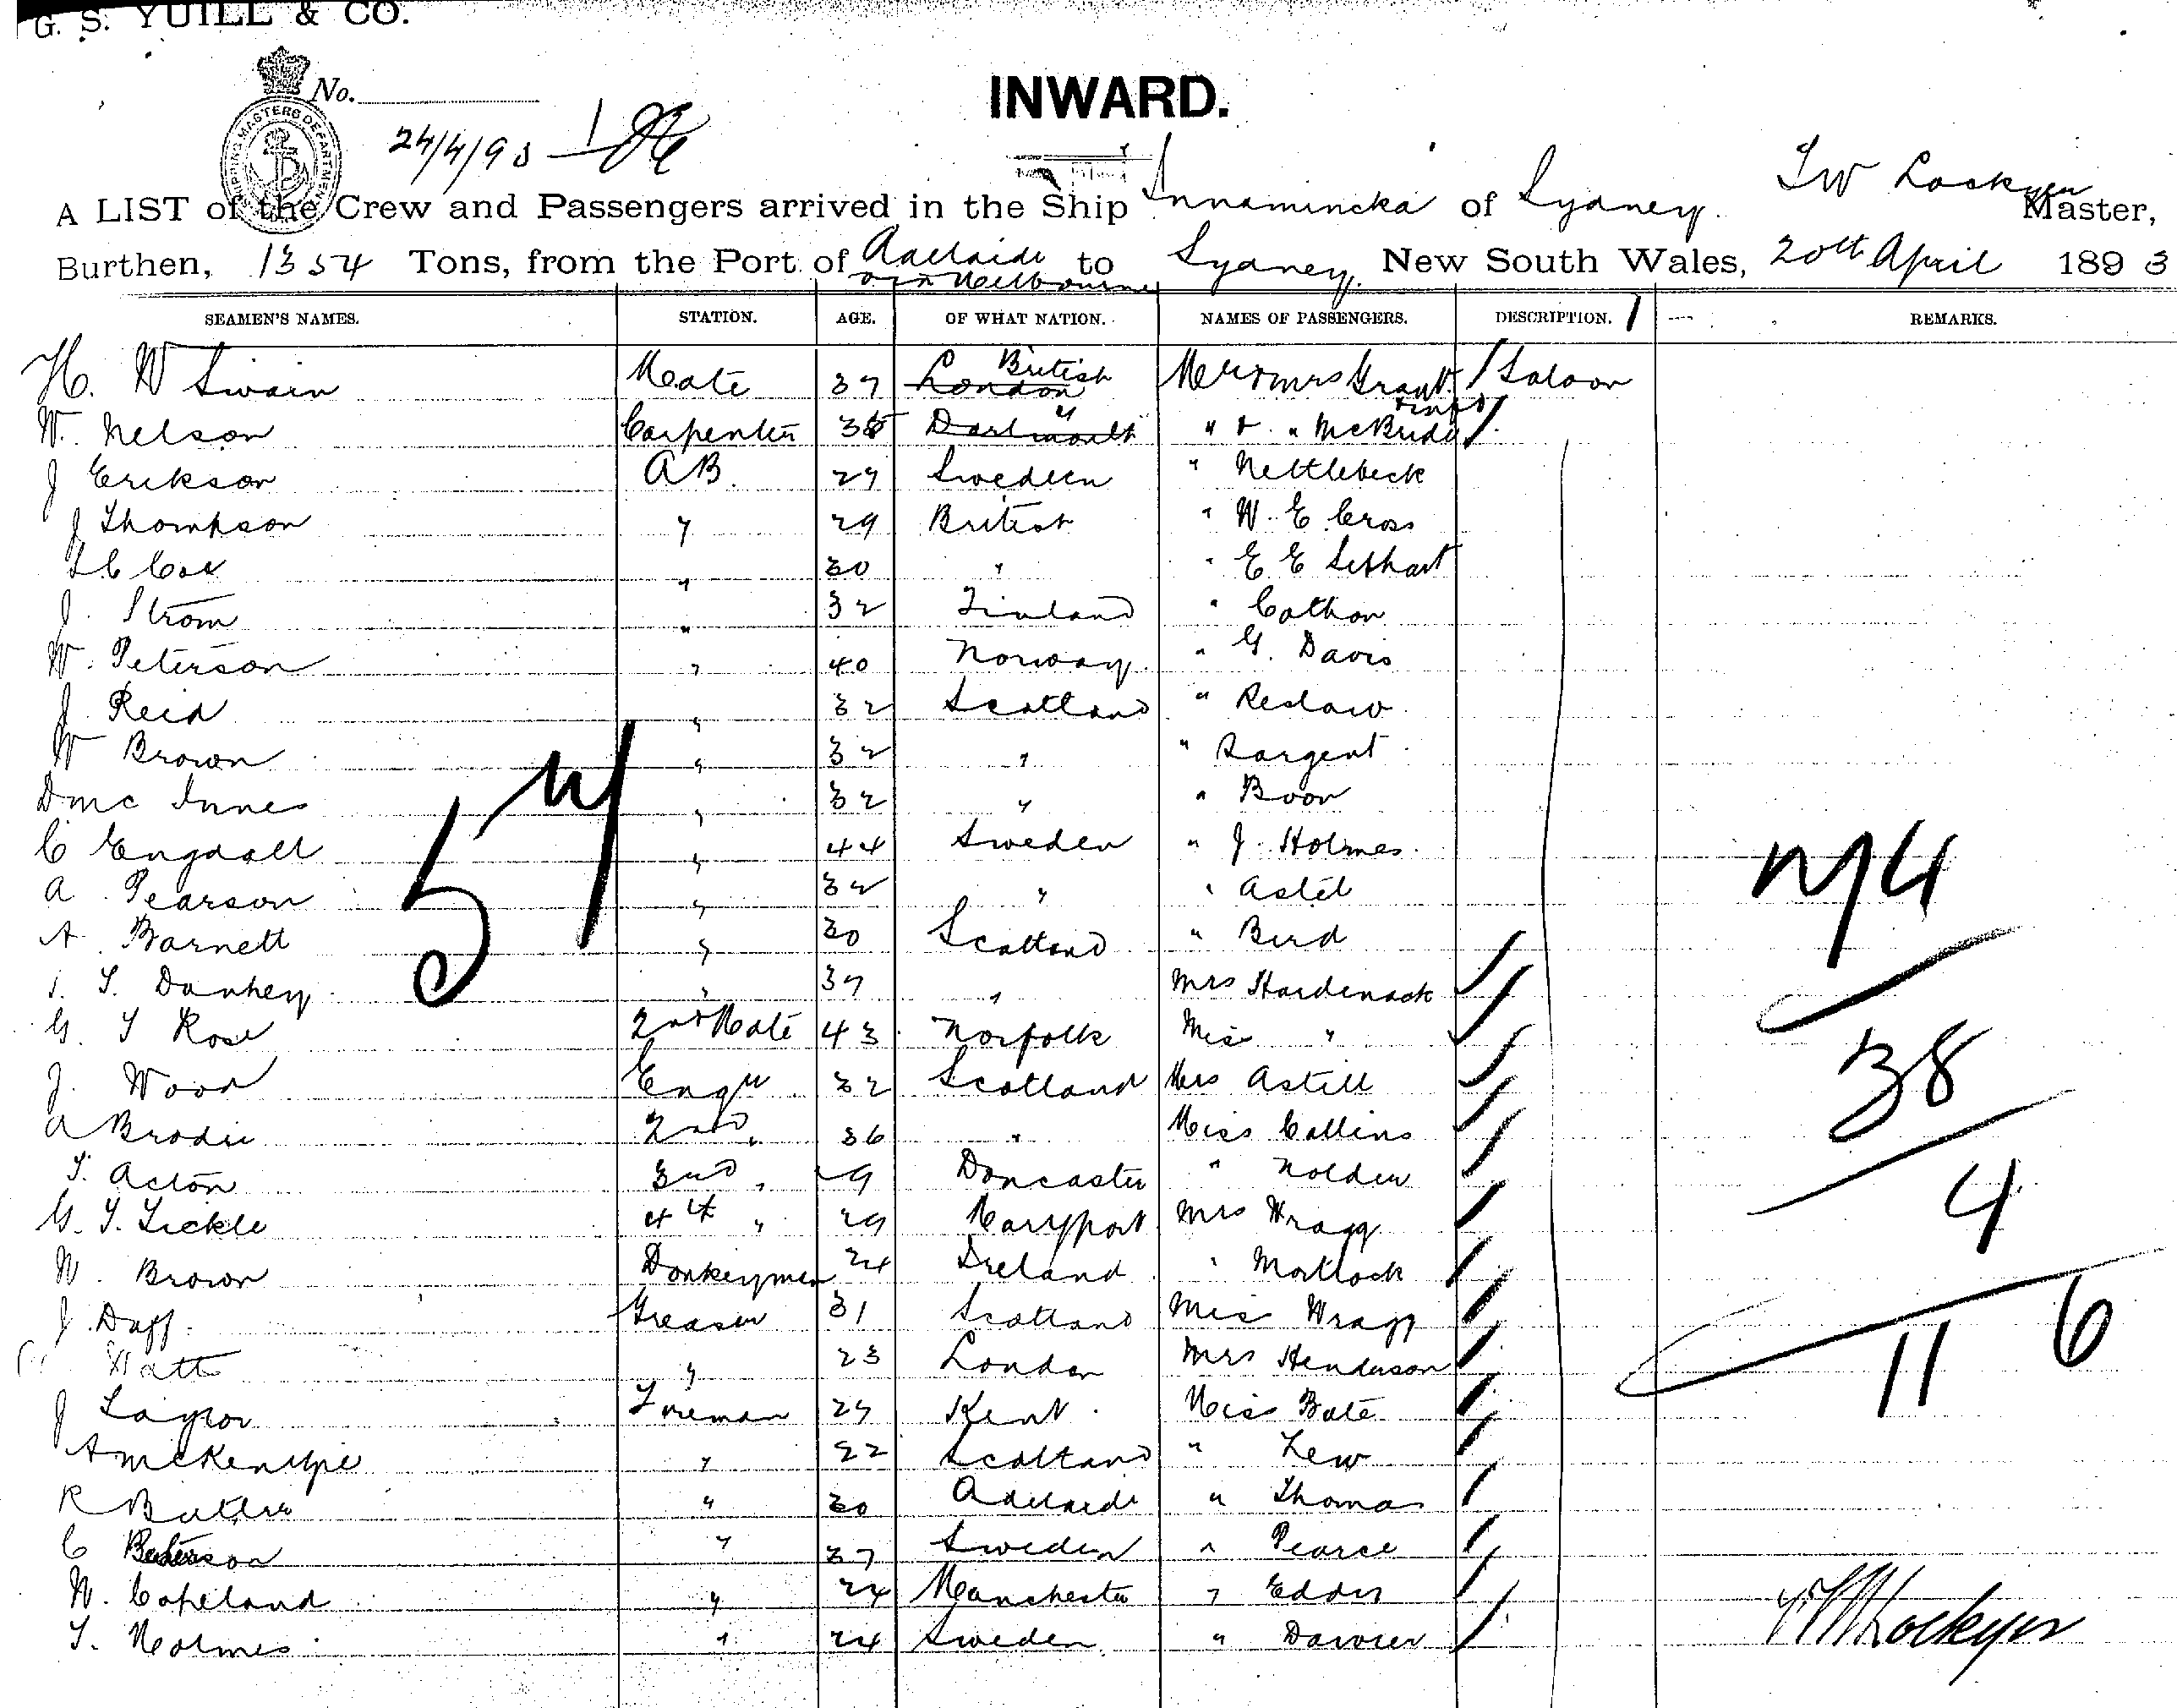 G. S. YUILL & CO.
No.
INWARD.
SHIPPING MASTERS DEPARTMENT
24/4/93
T W Lockyer
A LIST of the Crew and Passengers arrived in the Ship Innamincka of Sydney Master,
Burthen, 1354 Tons, from the Port of Adelaide via Melbourne to Sydney, New South Wales, 20th April 1893
SEAMEN'S NAMES. STATION. AGE. OF WHAT NATION. NAMES OF PASSENGERS. DESCRIPTION. REMARKS.
H. W Swain Mate 37 London British Mr & Mrs Grant Saloon
W. Nelson Carpenter 35 Dartmouth " " & " McBride
J Erikson AB. 27 Swedeen " Nettlebeck
J Thompson " 29 British " W. E. Cross
Cox " 30 " " E E
J. Strom " 32 Finland " Cothon
W. Peterson " 40 Norway " G. Davis
J. Reid " 32 Scotland " Reslaw
W Brown " 32 " " Sargent
D Mc Innes " 32 " " Boon
C Engdall " 44 Sweden " J. Holmes
A. Pearson " 32 " " Astil
A. Barnett " 30 Scotland " Bird
T. " 37 " Mrs Hardenack
G. T Rose 2nd Mate 43 Norfolk Miss "
J. Wood Engr 32 Scotland Mrs Astill
A Brodie 2nd " 36 " Miss Collins
T. Acton 3rd " 29 Doncaster " Nolden
G. T. Tickle 4th " 29 Maryport Mrs Wragg
W. Brown Donkeyman 24 Ireland " Mortlock
J. Duff Greaser 31 Scotland Miss Wragg
Watt " 23 London Mrs Henderson
J Taylor Fireman 27 Kent Miss Bate
A McKenzie " 22 Scotland " Lew
R Butler " 30 Adelaide " Thomas
C Peterson " 37 Sweden " Pearce
W. Copeland " 24 Manchester " Eddis
T. Holmes " 24 Sweden "
57
M4
38
4
11 6
T W Lockyer